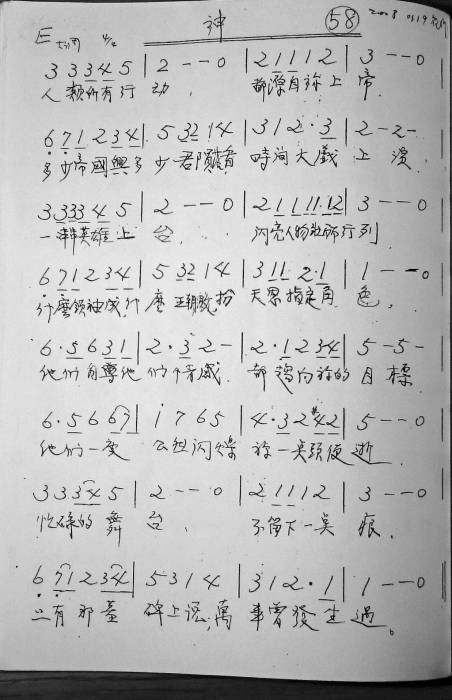 神 58 2008 0319
E 4/4
3 3 3 4 5 | 2 - - 0 | 2 1 1 1 2 | 3 - - 0
人類所有行動, 都源自祢上帝.
6 7 1 2 3 4 | 5 3 2 1 4 | 3 1 2 · 3 | 2 - 2 -
多少帝國興多少君 時間大戲上演.
3 3 3 3 4 5 | 2 - - 0 | 2 1 1 1 1 1 · 1 2 | 3 - - 0
英雄上台. 閃亮人物 行列
6 7 1 2 3 4 | 5 3 2 1 4 | 3 1 1 2 · 1 | 1 - - 0
什麼領袖 什麼 扮 天恩指定角色,
6 · 5 6 3 1 | 2 · 3 2 - | 2 · 1 2 3 4 | 5 - 5 -
他們自尊他們 威 都 向祢的目標
6 · 5 6 6 7 | i 7 6 5 | 4 · 3 2 #4 2 | 5 - - 0
他們一 閃爍 祢一 便逝.
3 3 3 4 5 | 2 - - 0 | 2 1 1 1 2 | 3 - - 0
忙碌的舞台, 不留下一 痕.
6 7 1 2 3 4 | 5 3 1 4 | 3 1 2 · 1 | 1 - - 0
只有那墓碑上說, 萬事曾發生過。